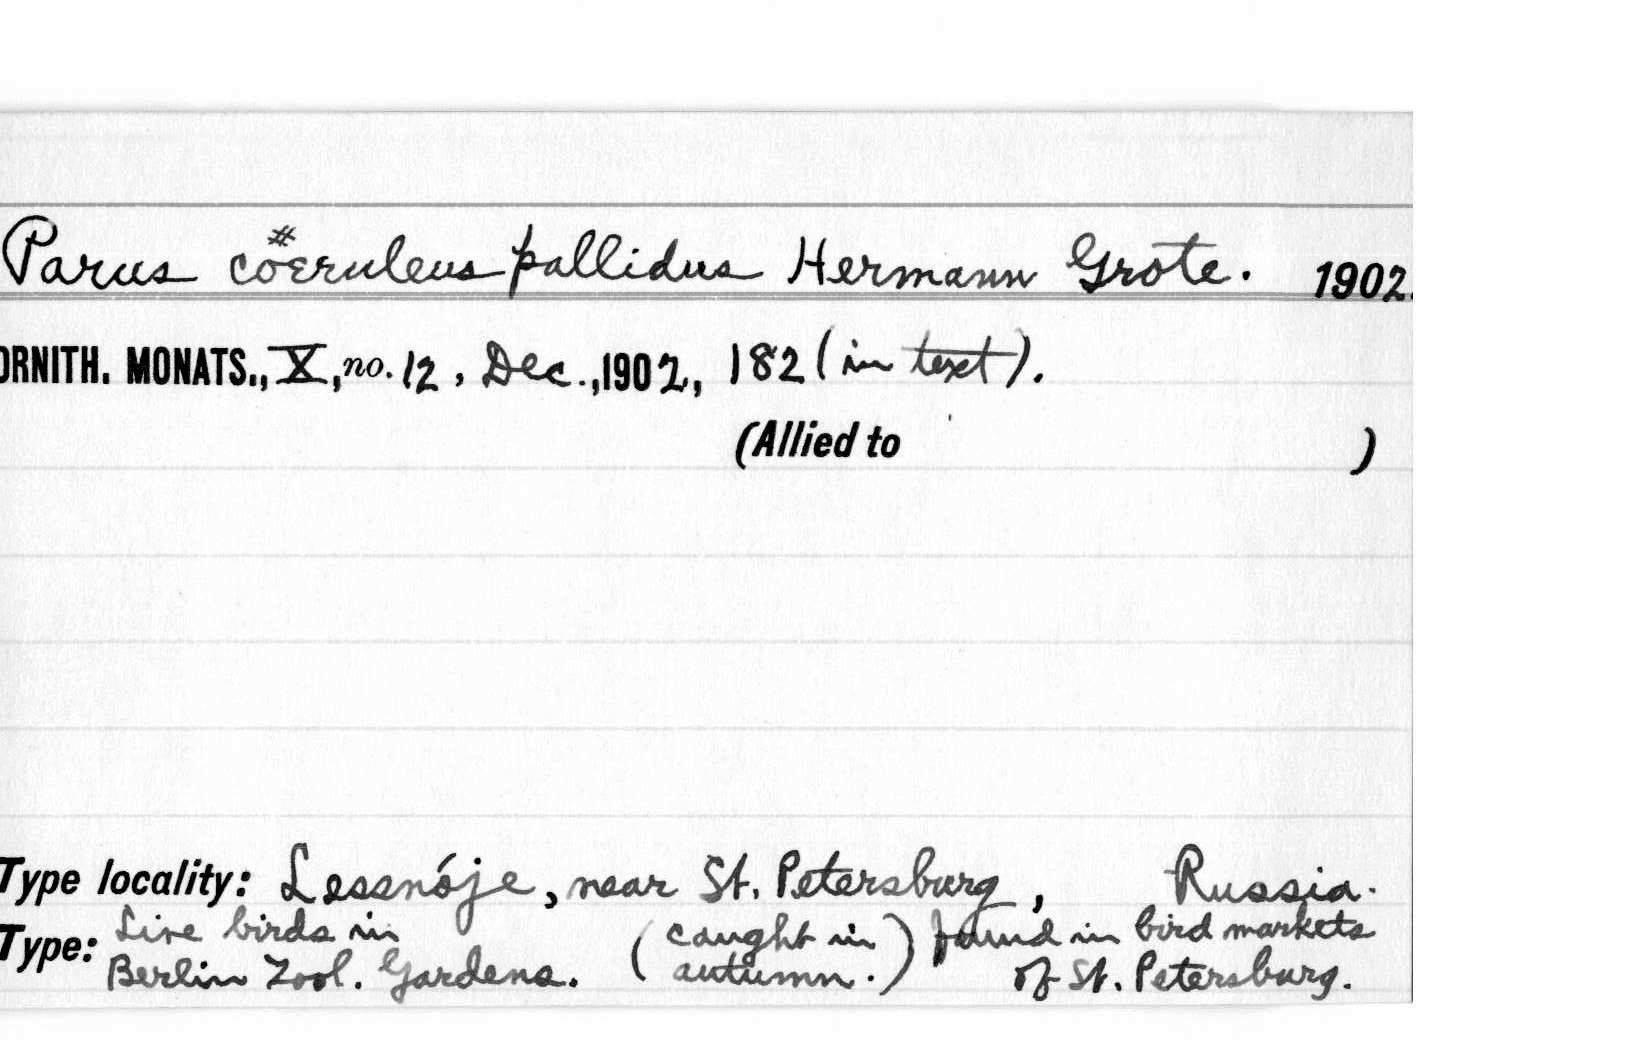 #
Parus coeruleus pallidus Hermann Grote. 1902.
ORNITH. MONATS., X, no. 12, Dec., 1902, 182 (in text).
(Allied to )
Type locality: Lessnóje, near St. Petersburg, Russia.
Type: Live birds in Berlin Zool. Gardens. (caught in autumn.) found in bird markets of St. Petersburg.